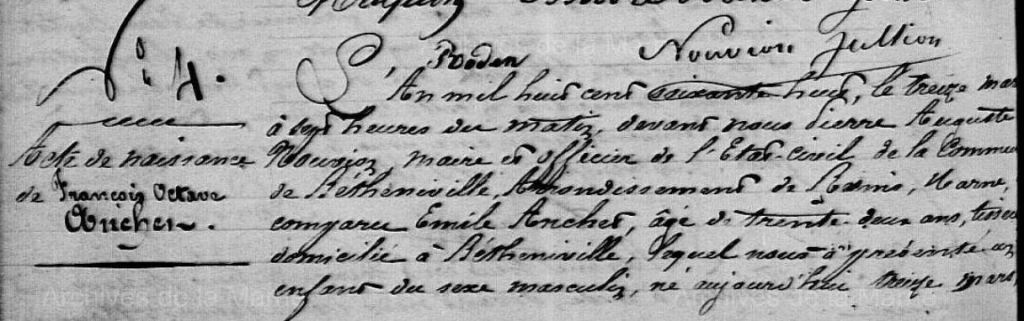 Roden Nouvion Jullion
N° 4.
L'An mil huit cent soixante huit, le treize mar
à sept heures du matin, devant nous Pierre Auguste
Acte de naissance
Nouvion, maire et officier de l'Etat-civil de la Commu
de François Octave
de Bétheniville, Arrondissement de Reims, Marne,
Ancher.
comparu Emile Ancher, âgé de trente deux ans, tisseu
domicilié à Bétheniville, lequel nous à présenté un
enfant du sexe masculin, né aujourd'hui treize mars,
Archives de la Ma